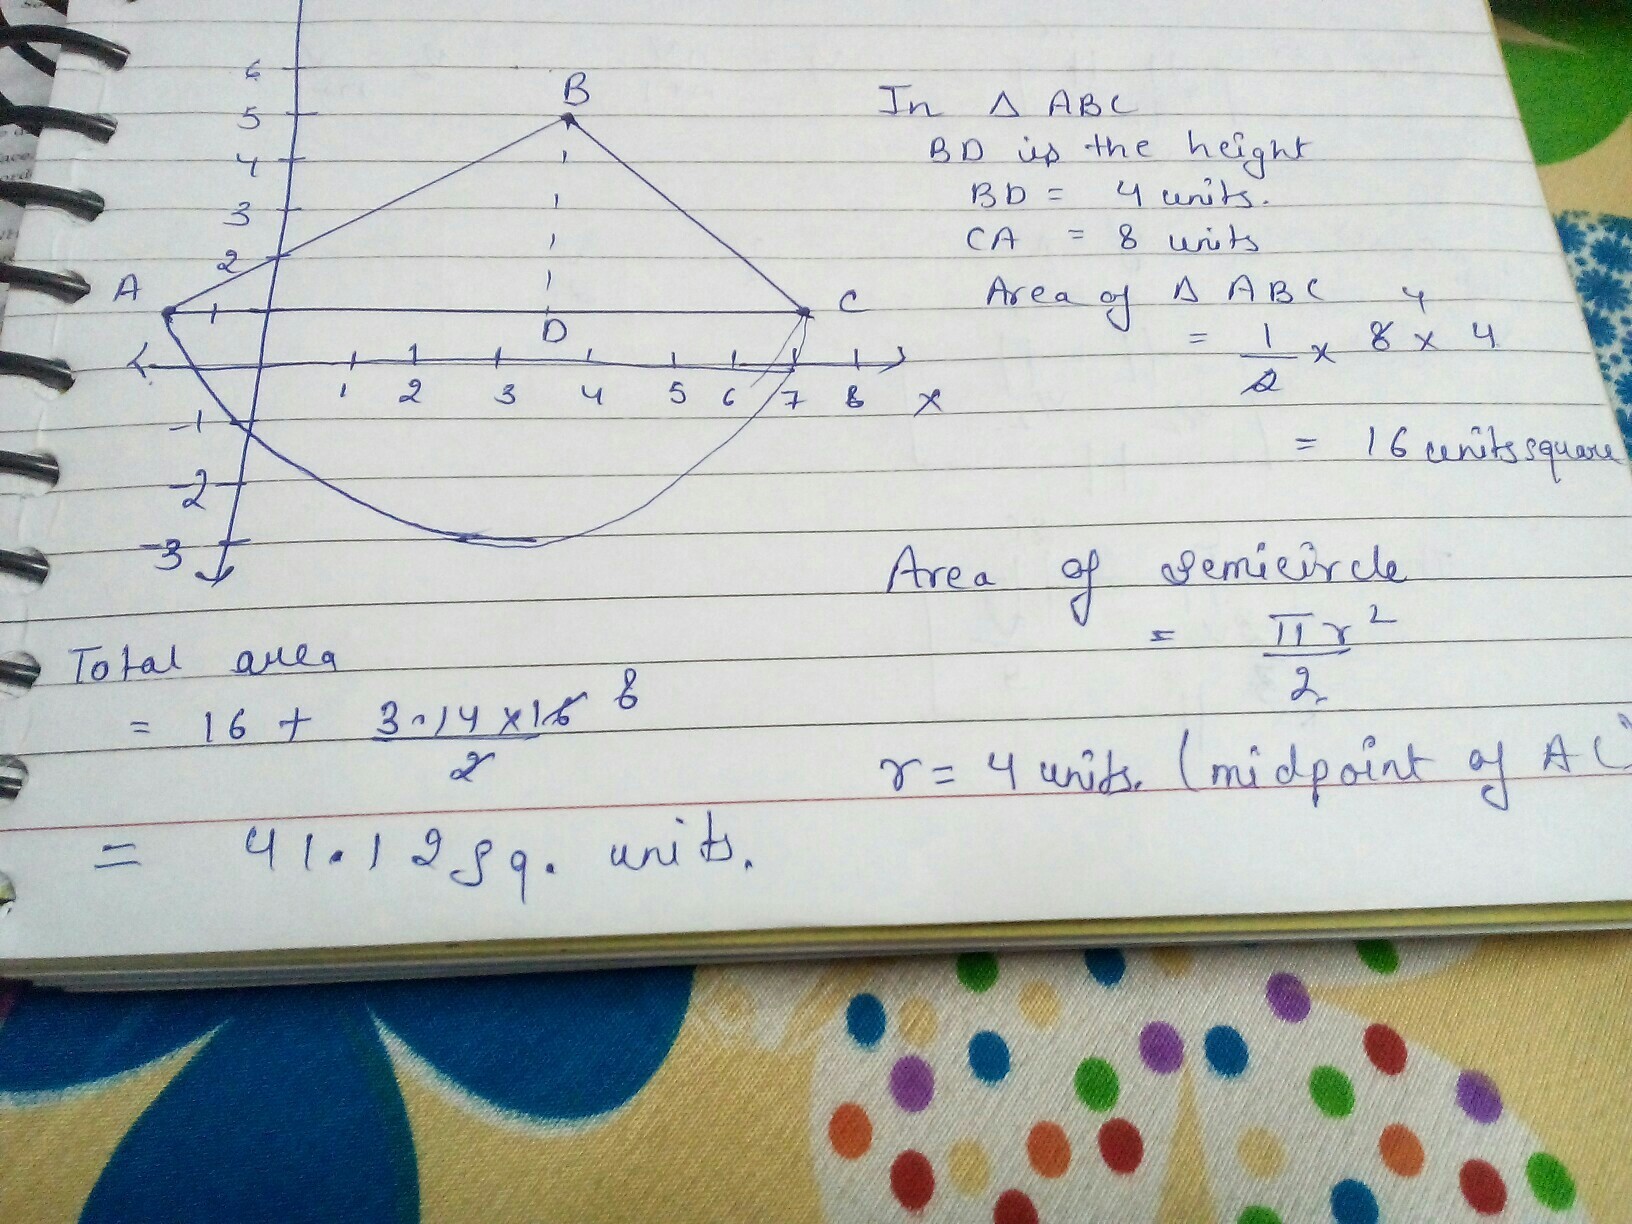 6
B
5
4
3
2
A
C
D
1 2 3 4 5 6 7 8 x
-1
-2
-3
In Δ ABC
BD is the height
BD = 4 units.
CA = 8 units
Area of Δ ABC
= 1/2 x 8 x 4
4
= 16 units square
Area of semicircle
= πr²/2
r = 4 units. (midpoint of AC)
Total area
= 16 + 3.14 x 16/2 8
= 41.12 sq. units.